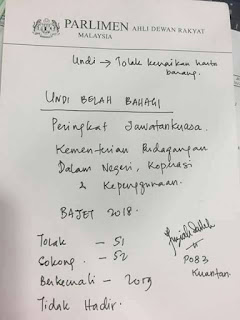 PARLIMEN AHLI DEWAN RAKYAT
MALAYSIA
Undi → Tolak kenaikan harta
barang.
UNDI BELAH BAHAGI
Peringkat Jawatankuasa.
Kementerian Perdagangan
Dalam Negeri, Koperasi
& Kepenggunaan.
BAJET 2018.
Tolak - 51
Sokong - 52
Berkecuali -
Tidak Hadir.
P083
Kuantan.